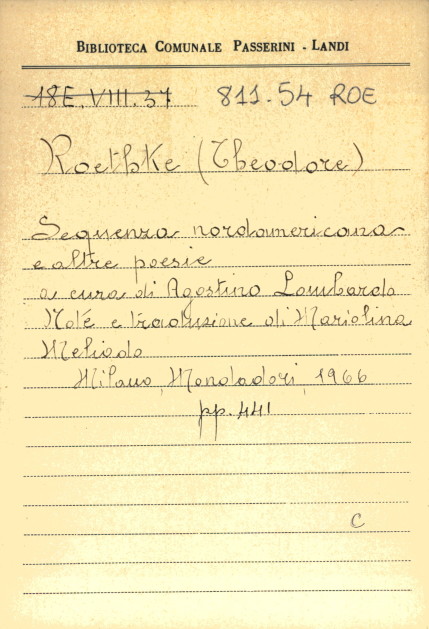 BIBLIOTECA COMUNALE PASSERINI - LANDI
18E.VIII.37 811.54 ROE
Roethke (Theodore)
Sequenza nordamericana
e altre poesie
a cura di Agostino Lombardo
Note e traduzione di Mariolina
Meliadò
Milano, Mondadori, 1966
pp. 441
C